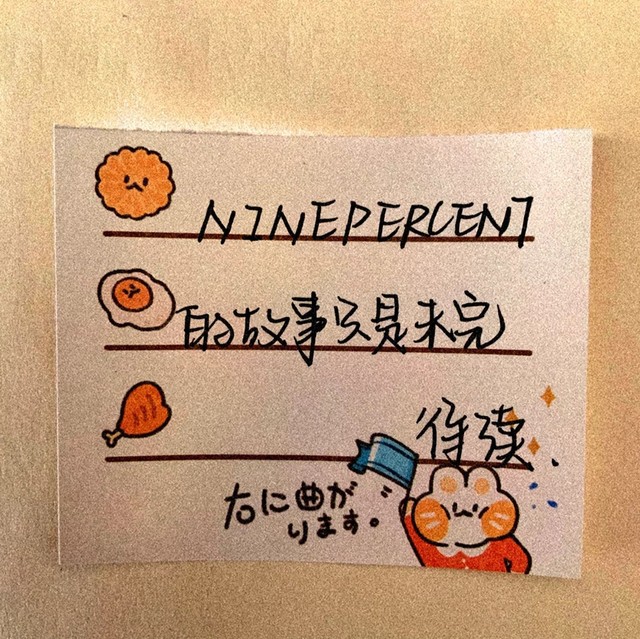 NINEPERCENT
的故事只是未完
待续.
右に曲が
ります。